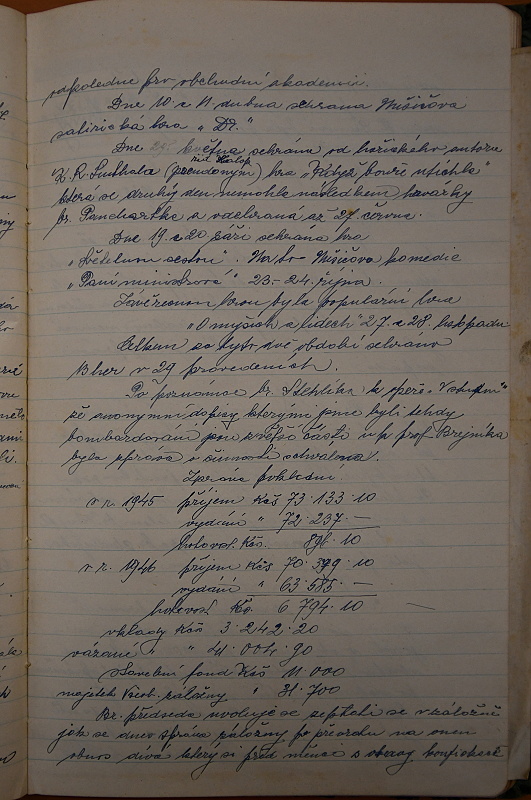 odpoledne pro obchodní akademii.
Dne 10. a 11. dubna sehrána Nušičova
satirická hra „Dr."
Dne května sehrána od hořického autora
K. R. (pseudonym) hra „Když bouře utichla"
která se druhý den nemohla následkem havarky
br. a odehraná až 27 června.
Dne 19. a 20. září sehrána hra
„ ". Na to Nušičova komedie
„Paní ministrová" 23.-24. října.
Závěrečnou hrou byla populární hra
„O myších a lidech" 27. a 28. listopadu
Celkem za tyto dvě období sehráno
8 her v 29 provedeních.
Po poznámce br. Stehlíka k opeře „V studni"
že anonymní dopisy kterými jsme byli tehdy
bombardováni jsou z větší části u p. prof. Brejníka
byla zpráva o činnosti schválena.
Zpráva pokladní.
v r. 1945 příjem Kčs 73.133.10
vydání " 72.237.—
hotovost Kčs. 896.10
v r. 1946 příjem Kčs 70.399.10
vydání " 63.585.—
hotovost Kčs. 6 794.10
vklady Kčs 3.242.20
vázané " " 41.004.90
Stavební fond Kčs 11.000
majetek Všeob. záložny " 31.700
Br. předseda uvoluje se zeptati se v záložně
jak se dnes správa záložny po převratu na onen
obnos dívá který si před němci s obavy konfiskace